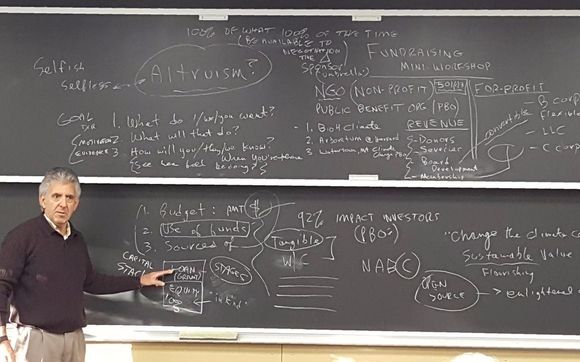 100% OF WHAT 100% OF THE TIME
(BE AVAILABLE TO
NEGOTIATION
THE △
SPONSOR
(umbrella)
FUNDRAISING
MINI-WORKSHOP
Selfish
Selfless
Altruism?
NGO (NON-PROFIT) 501(c)3
FOR-PROFIT
PUBLIC BENEFIT ORG (PBO)
REVENUE
B corp
Flexible
LLC
C corp
convertible
GOAL
1. What do I/we/you want?
2. What will that do?
EVIDENCE 3. How will you/they/we know?
(See hear feel When you're there
be doing?)
1. BioHClimate
2. Arboretum @ Harvard
3. Watertown, MA Climate
Donors
Services
Board
Development
Membership
1. Budget: AMT $
2. Use of funds
3. Sourced of
CAPITAL
STACK
LOAN
(GRANT)
EQUITY
STAGES
in kind
92% IMPACT INVESTORS
(PBO's)
Tangible
W C
NABC
"Change the climate
Sustainable Value
Flourishing
OPEN
SOURCE
enlightened